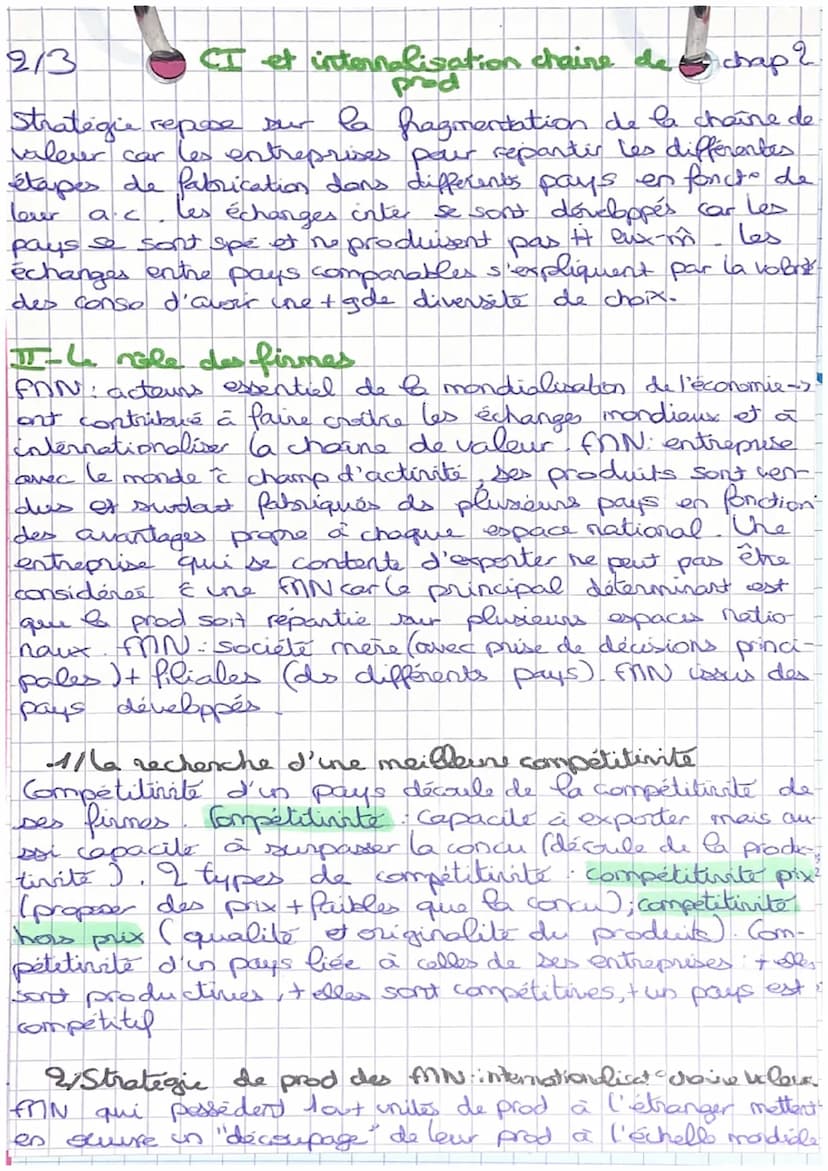 2/3 CI et internalisation chaine de chap 2
prod
Stratégie repose sur la fragmentation de la chaîne de
valeur car les entreprises pour répartir les différentes
étapes de fabrication dans différents pays en fonct° de
leur a.c. Les échanges inter se sont développés car les
pays se sont spé et ne produisent pas tt eux-m̂. Les
échanges entre pays comparables s'expliquent par la volonté
des conso d'avoir une + gde diversité de choix.
II - Le rôle des firmes
FMN : acteurs essentiel de la mondialisation de l'économie ->
ont contribué à faire croître les échanges mondiaux et à
internationaliser la chaine de valeur. FMN : entreprise
avec le monde c̄ champ d'activité, ses produits sont ven-
dus et surtout fabriqués ds plusieurs pays en fonction
des avantages propre à chaque espace national. Une
entreprise qui se contente d'exporter ne peut pas être
considérée c̄ une FMN car le principal déterminant est
que la prod soit répartie sur plusieurs espaces natio-
naux. FMN : société mère (avec prise de décisions princi-
pales) + filiales (ds différents pays). FMN issus des
pays développés.
1/ La recherche d'une meilleure compétitivité
Compétitivité d'un pays découle de la compétitivité de
ses firmes. Compétitivité : capacité à exporter mais au-
ssi capacité à surpasser la concu (découle de la produc-
tivité). 2 types de compétitivité : compétitivité prix
(proposer des prix + faibles que la concu) ; compétitivité
hors prix (qualité et originalité du produits). Com-
pétetivité d'un pays liée à celles de ses entreprises : + elles
sont productives, + elles sont compétitives, + un pays est
compétitif
2/ Stratégie de prod des FMN : internationalisat° chaîne valeur
FMN qui possèdent tout unités de prod à l'étranger mettent
en œuvre un "découpage" de leur prod à l'échelle mondiale